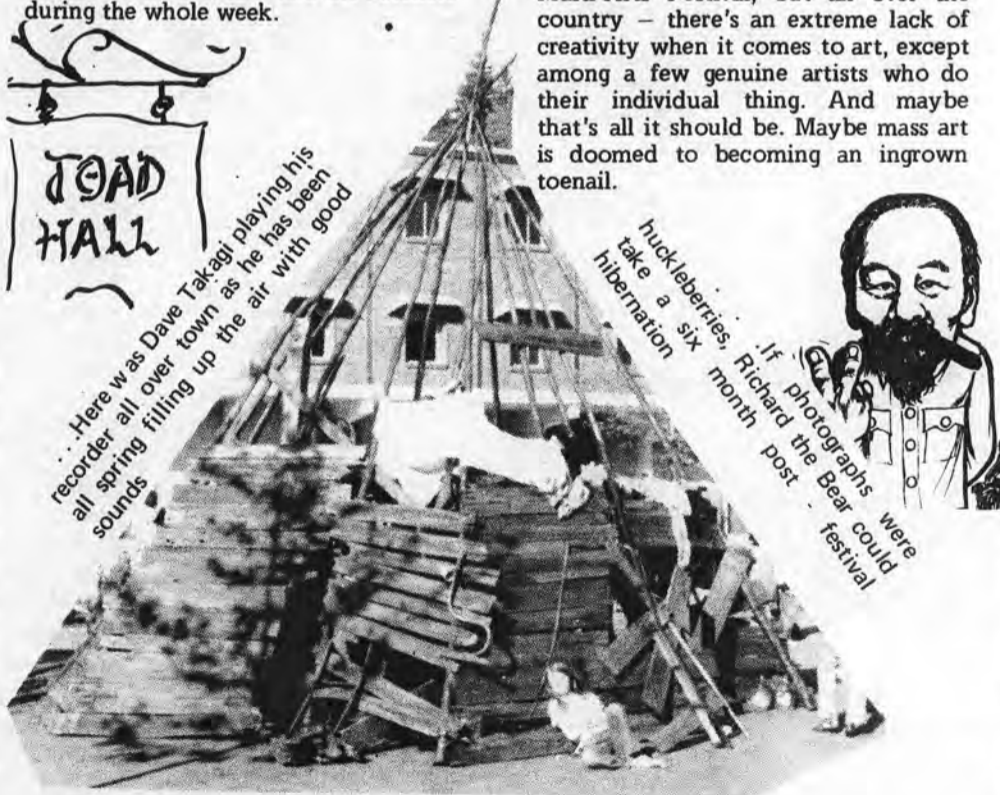 during the whole week.
TOAD
HALL
. . .Here was Dave Takagi playing his
recorder all over town as he has been
all spring filling up the air with good
sounds
country — there's an extreme lack of
creativity when it comes to art, except
among a few genuine artists who do
their individual thing. And maybe
that's all it should be. Maybe mass art
is doomed to becoming an ingrown
toenail.
. . .If photographs were
huckleberries, Richard the Bear could
take a six month post - festival
hibernation